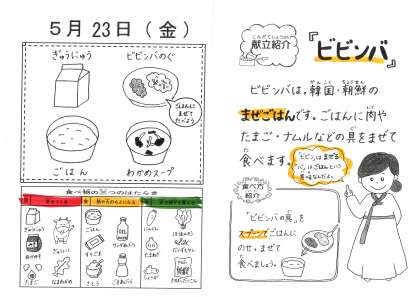 5月23日(金)
ぎゅうにゅう
ビビンバのぐ
ごはんに
まぜて
たべよう
ごはん
わかめスープ
食べ物の三つのはたらき
ぎゅうにゅう
ぎゅうにく
たまご
ごはん
さとう
ごまあぶら
にんじん
こんだてしょうかい
献立紹介
『ビビンバ』
かんこく ちょうせん
ビビンバは、韓国・朝鮮の
まぜごはんです。ごはんに肉や
たまご・ナムルなどの具をまぜて
食べます。
「ビビン」はまぜる
「バ」はごはんという
意味なんだよ。
食べ方
紹介
「ビビンバの具」を
スプーンでごはんに
のせ、まぜて
食べましょう。